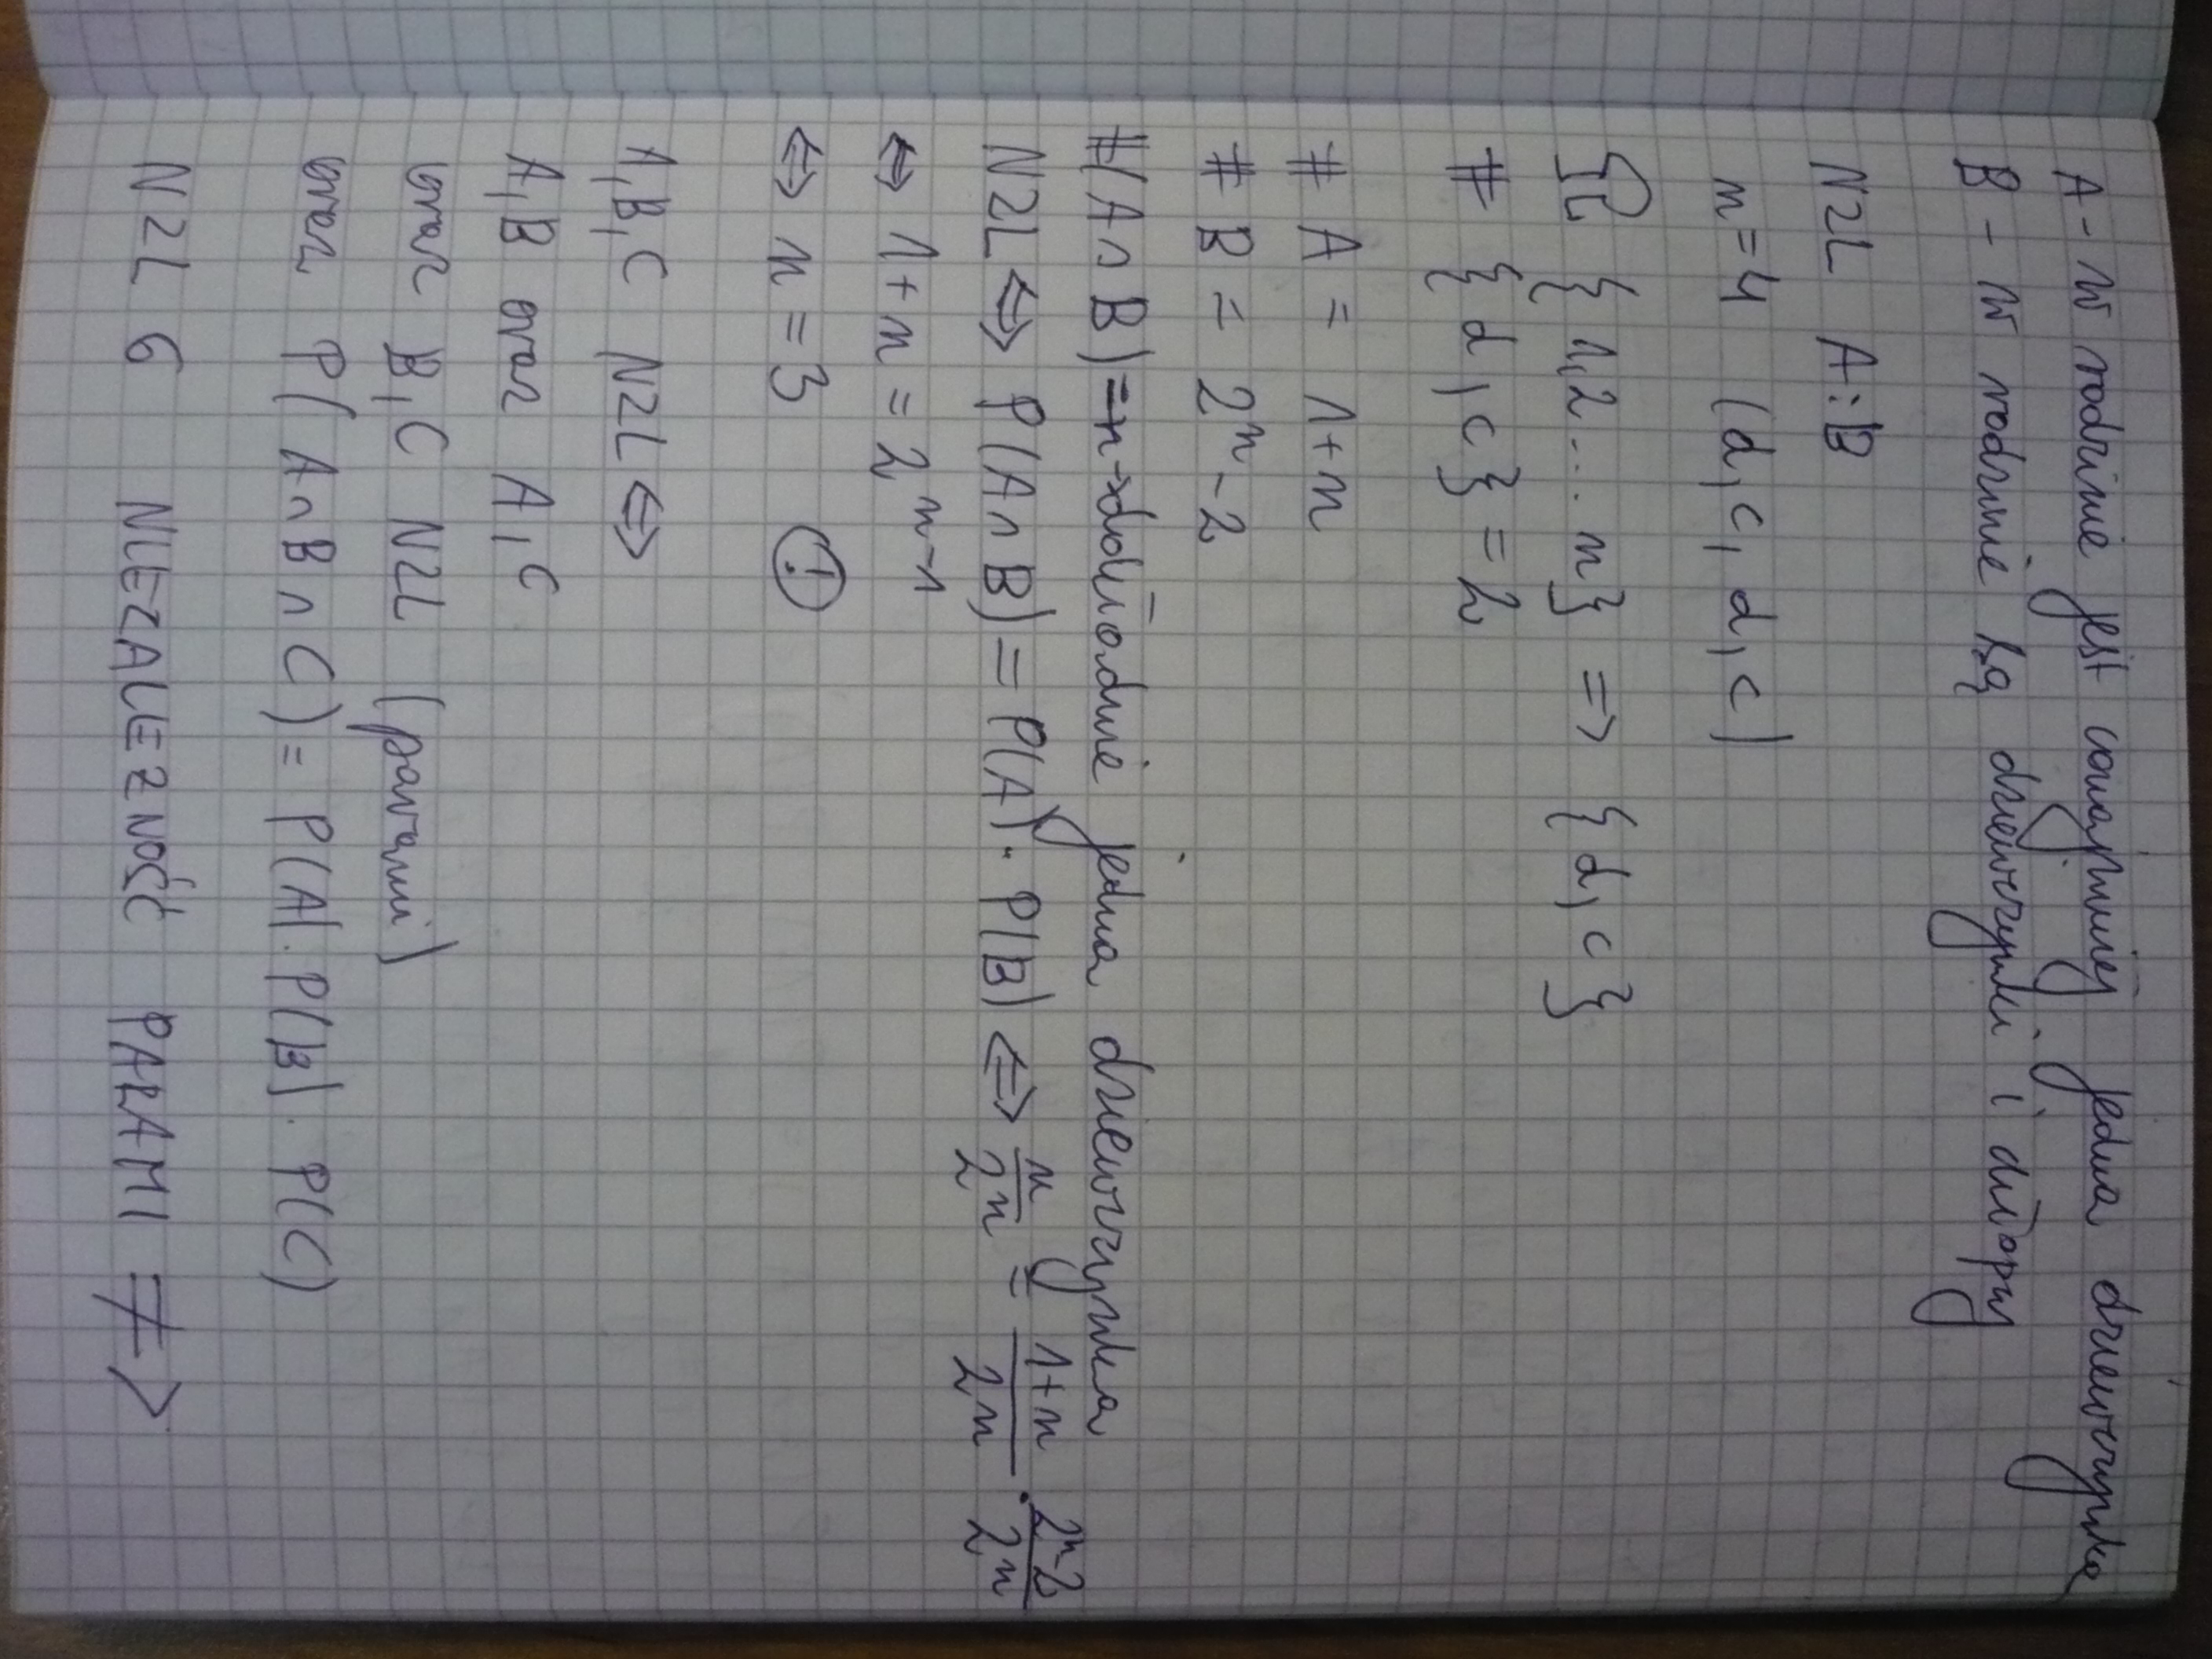 A - w rodzinie jest conajmniej jedna dziewczynka
B - w rodzinie są dziewczynki i chłopcy
NZL A i B
n = 4 (d, c, d, c)
Ω {1,2... n} => {d, c}
# {d, c} = 2
# A = 1+n
# B = 2^n - 2
#(A∩B) = n → dokładnie jedna dziewczynka
NZL ⇔ P(A∩B) = P(A) · P(B) ⇔ n/2^n = (1+n)/2^n · (2^n-2)/2^n
⇔ 1+n = 2^(n-1)
⇔ n = 3 (!)
A, B, C NZL ⇔
A, B oraz A, C
oraz B, C NZL (parami)
oraz P(A∩B∩C) = P(A) · P(B) · P(C)
NZL 6 NIEZALEŻNOŚĆ PARAMI ≠>